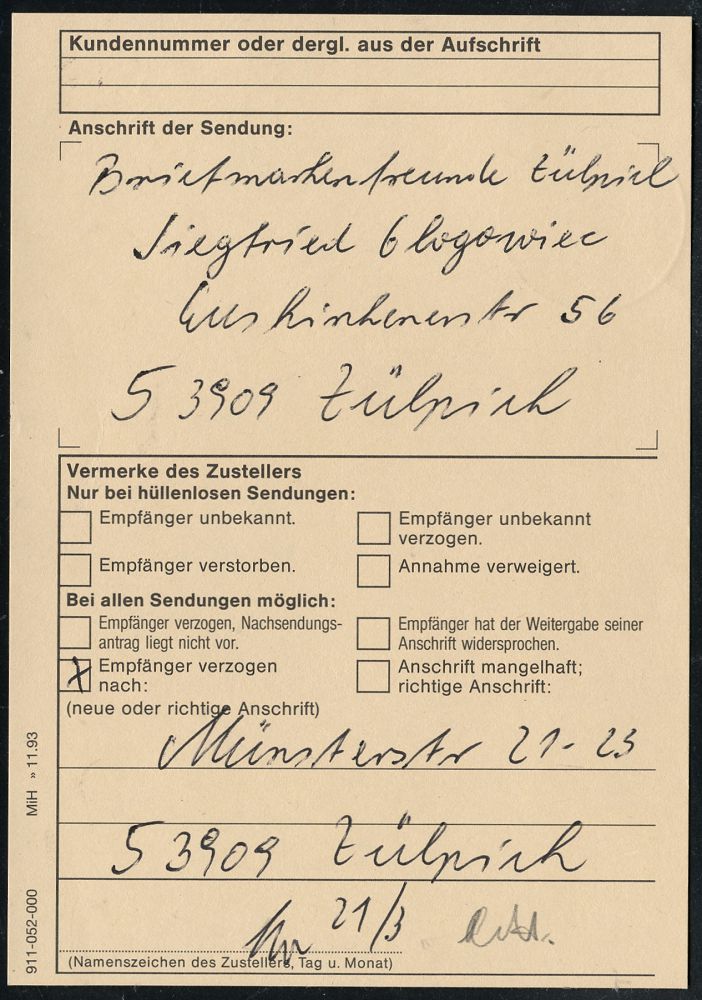 Kundennummer oder dergl. aus der Aufschrift
Anschrift der Sendung:
Briefmarkenfreunde Zülpich
Siegfried Glogowiec
Euskirchenerstr 56
53909 Zülpich
Vermerke des Zustellers
Nur bei hüllenlosen Sendungen:
Empfänger unbekannt.
Empfänger unbekannt
verzogen.
Empfänger verstorben.
Annahme verweigert.
Bei allen Sendungen möglich:
Empfänger verzogen, Nachsendungs-
antrag liegt nicht vor.
Empfänger hat der Weitergabe seiner
Anschrift widersprochen.
X Empfänger verzogen
nach:
Anschrift mangelhaft;
richtige Anschrift:
(neue oder richtige Anschrift)
Münsterstr 21-23
53909 Zülpich
21/3
(Namenszeichen des Zustellers, Tag u. Monat)
MiH » 11.93
911-052-000